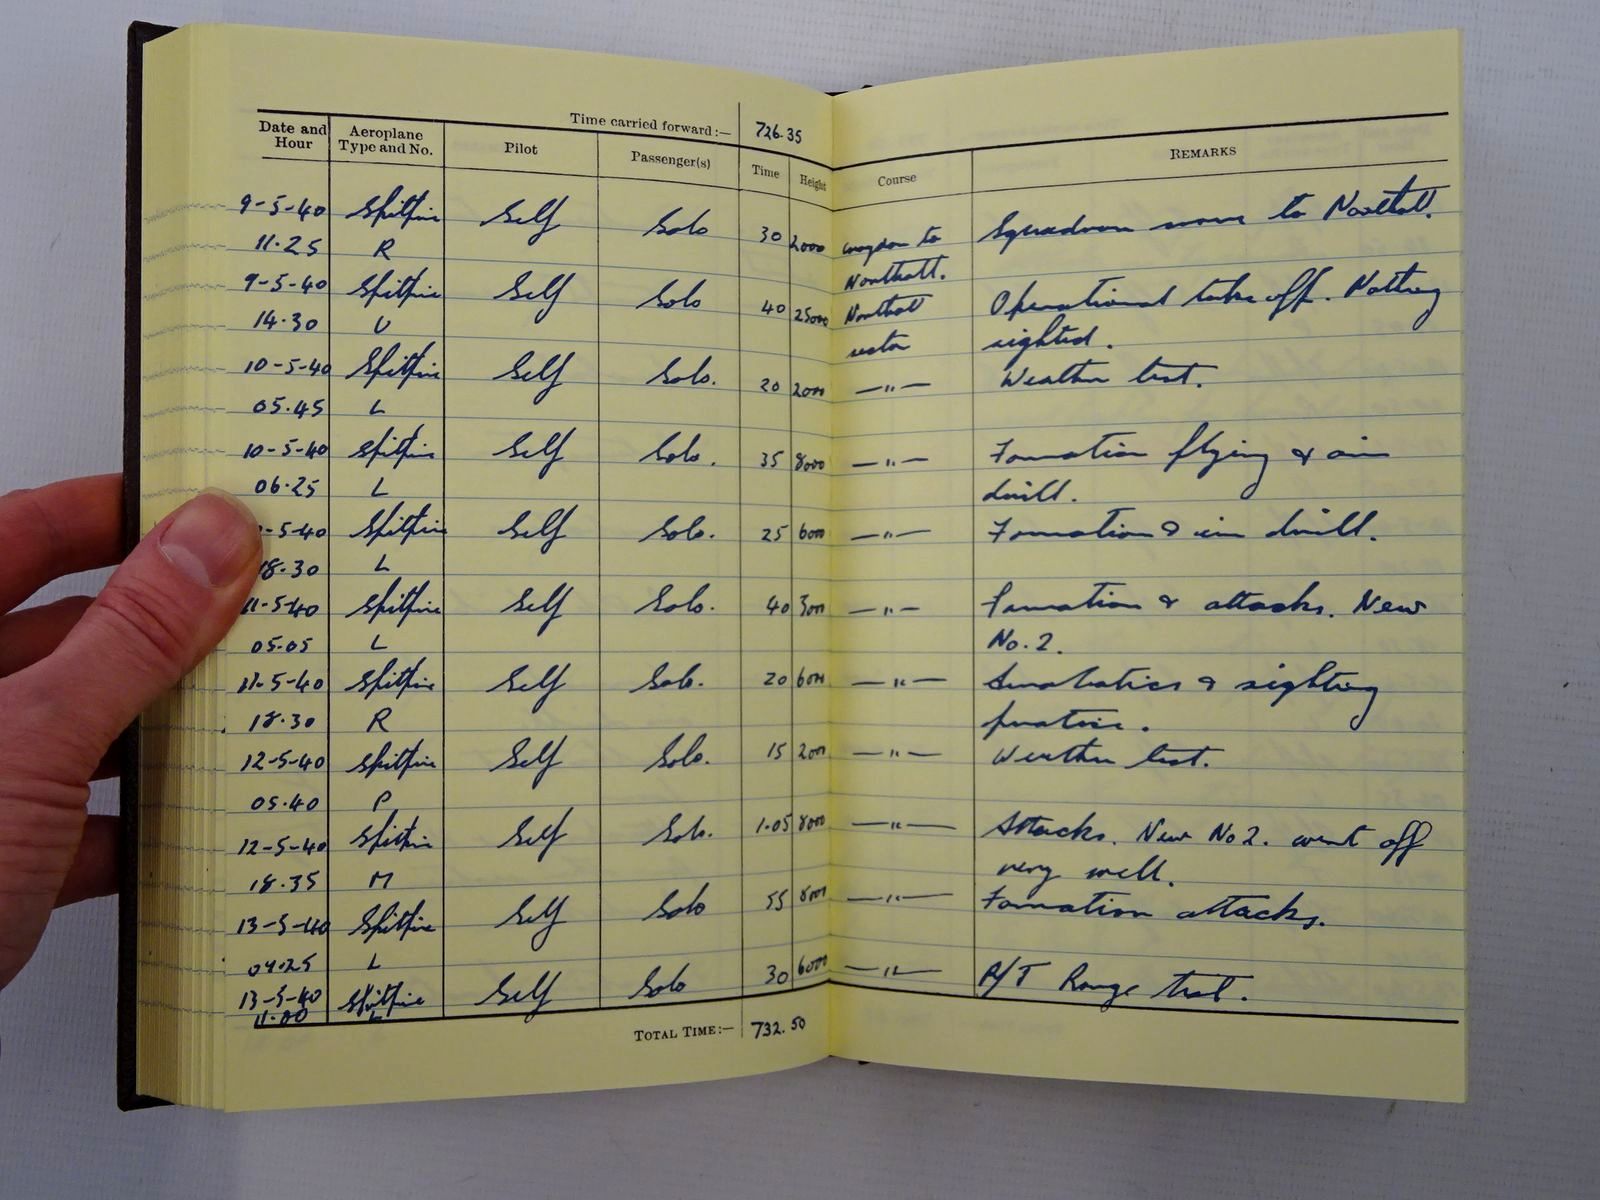 Time carried forward:— 726.35
Date and Hour Aeroplane Type and No. Pilot Passenger(s) Time Height Course REMARKS
9-5-40 Spitfire Self Solo 30 2000 Croydon to Squadron move to Northolt.
11.25 R Northolt.
9-5-40 Spitfire Self Solo 40 25000 Northolt Operational take off. Nothing
14.30 U sector sighted.
10-5-40 Spitfire Self Solo. 20 2000 —"— Weather test.
05.45 L
10-5-40 Spitfire Self Solo. 35 8000 —"— Formation flying & air
06.25 L drill.
-5-40 Spitfire Self Solo. 25 6000 —"— Formation & air drill.
18.30 L
11-5-40 Spitfire Self Solo. 40 3000 —"— Formation & attacks. New
05.05 L No. 2.
11-5-40 Spitfire Self Solo. 20 6000 —"— Aerobatics & sighting
18.30 R practice.
12-5-40 Spitfire Self Solo. 15 2000 —"— Weather test.
05.40 P
12-5-40 Spitfire Self Solo. 1.05 8000 —"— Attacks. New No 2. went off
18.35 M very well.
13-5-40 Spitfire Self Solo 55 8000 —"— Formation attacks.
04.25 L
13-5-40 Spitfire Self Solo 30 6000 —"— R/T Range test.
11.00 L
TOTAL TIME:— 732.50